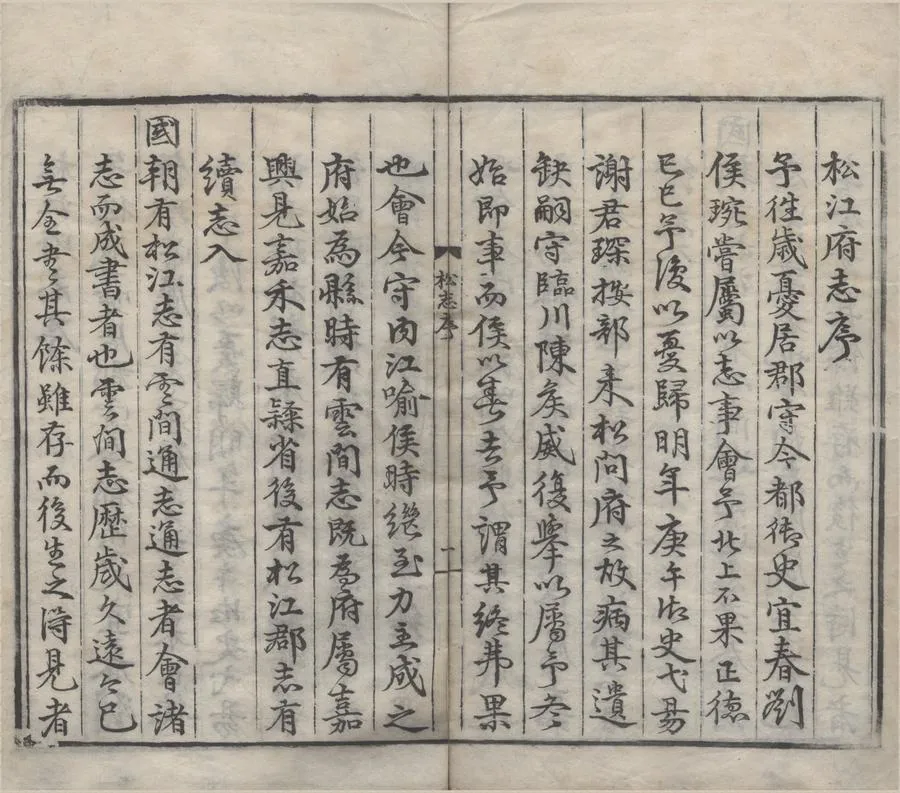 松江府志序
予徃歲憂居郡守今都御史宜春劉
侯琬嘗屬以志事會予北上不果正德
己巳予復以憂歸明年庚午御史弋昜
謝君琛按部来松問府之故病其遺
缺嗣守臨川陳矦威復舉以屬予冬
始即事而侯以去予謂其終弗果
也會今守内江喻侯時継至力主成之
松志序
二
府始為縣時有雲間志既為府屬嘉
興見嘉禾志直隸省後有松江郡志有
續志入
國朝有松江志有雲間通志通志者會諸
志而成書者也雲間志歷歲久遠今已
無全書其餘雖存而後生之得見者